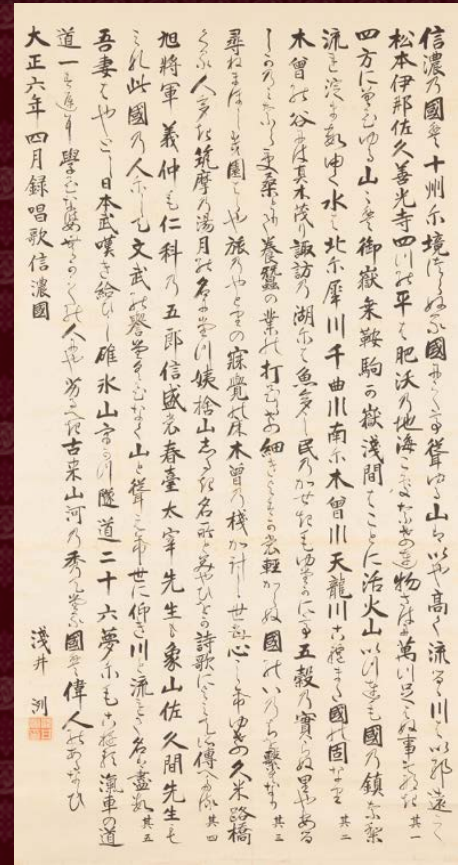 信濃乃國は十州尓境つらぬる國尓して聳ゆる山はいや高く流るゝ川はいや遠し
松本伊那佐久善光寺四つの平は肥沃乃地海こそなけれ物さはに萬川足らぬ事そなき 其一
四方に聳ゆる山々は御嶽乗鞍駒の嶽淺間はことに活火山いつれも國乃鎮なり
流れ淀ますゆく水は北尓犀川千曲川南尓木曾川天龍川これまた國の固なり 其二
木曾の谷には真木茂り諏訪乃湖尓は魚多し民乃かせきもゆたかにて五穀乃實らぬ里やある
しかのみならす桑とりて養蠶の業の打ひらけ細きよすかも輕からぬ國のいのちを繋なり 其三
尋ねまほしき園はらや旅のやとりの寐覺の床木曾乃棧かけし世も心してゆけ久米路橋
くる人多き筑摩の湯月の名にたつ姨捨山しるき名所とみやひをの詩歌によみてそ傳へたる 其四
旭將軍義仲も仁科乃五郎信盛も春臺太宰先生も象山佐久間先生も
みな此國乃人にして文武の譽たくひなく山と聳えて世に仰き川と流れて名は盡す 其五
吾妻はやとし日本武嘆き給ひし碓氷山穿つ隧道二十六夢にもこゆる滊車の道
道一すちに學ひなは昔の人にや劣るへき古来山河の秀てたる國は偉人のあるならひ
大正六年四月録唱歌信濃國
淺井 洌